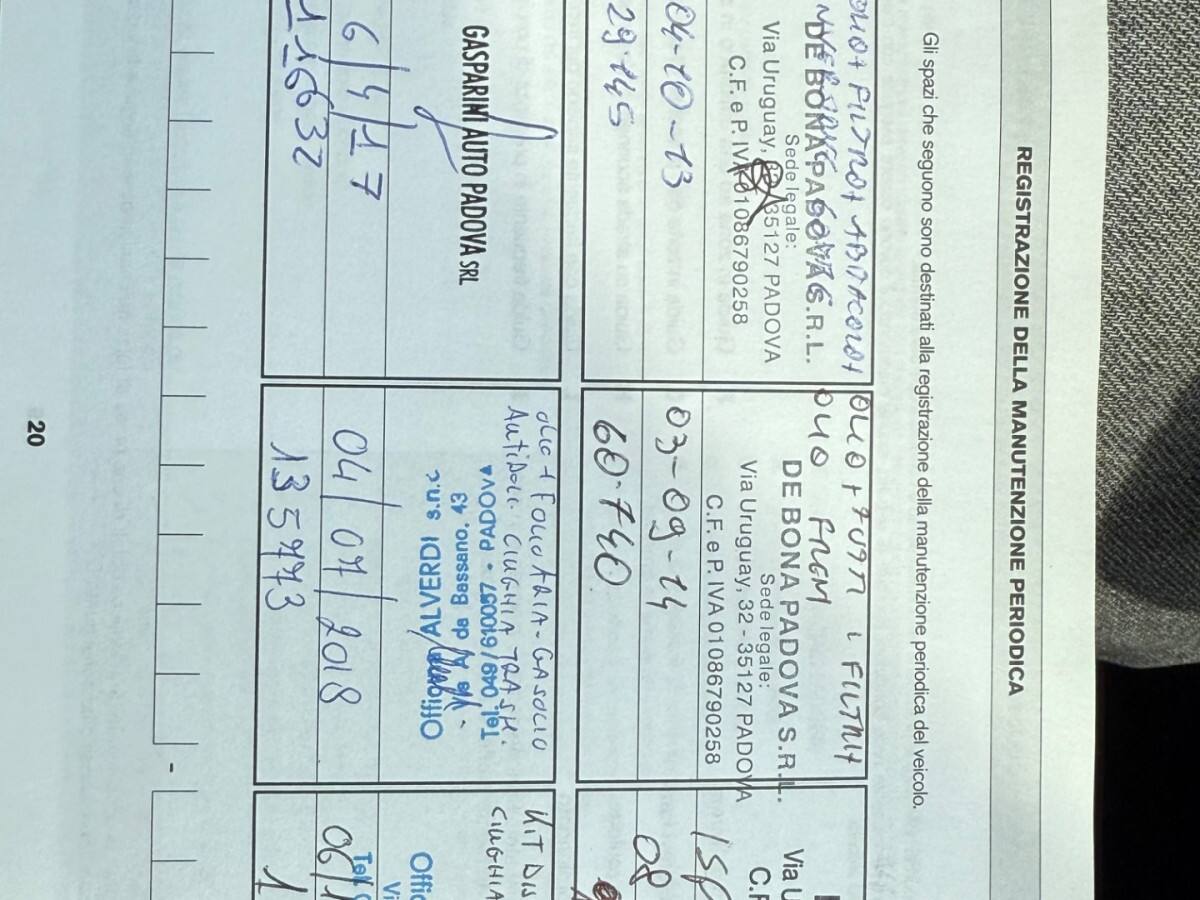 REGISTRAZIONE DELLA MANUTENZIONE PERIODICA
Gli spazi che seguono sono destinati alla registrazione della manutenzione periodica del veicolo.
OLIO+ FILTRO+
DE BONA PADOVA S.R.L.
Sede legale:
Via Uruguay, 35127 PADOVA
C.F. e P. IVA 01086790258
04-10-13
29.145
OLIO + TUTTI I FILTRI+
OLIO FRENI
DE BONA PADOVA S.R.L.
Sede legale:
Via Uruguay, 32 - 35127 PADOVA
C.F. e P. IVA 01086790258
03-09-14
60.740
Via U
C.F
08
GASPARINI AUTO PADOVA SRL
6/4/17
116632
OLIO+ ARIA-GASOLIO
CINGHIA TRASM.
Officina ALVERDI s.n.c
V.le A. da Bassano, 43
Tel. 049/610057 • PADOVA
04/07/2018
135773
KIT DIS
CINGHIA
Offic
Vi
Tel.
06/1
1
20